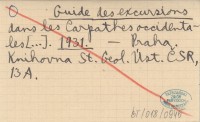 Guide des excursions
dans les Carpathes occidenta-
les [...]. 1931. — Praha,
Knihovna St. Geol. Úst. ČSR,
13A.